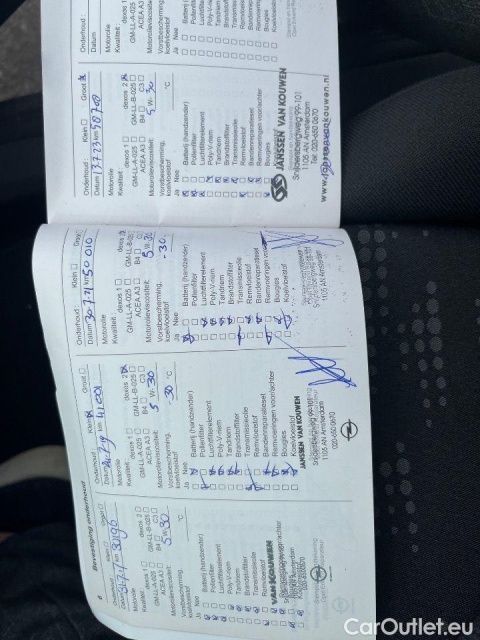 8 Bevestiging onderhoud
Onderhoud: Klein Groot
Datum km 30196
Motorolie
Kwaliteit: dexos 1 dexos 2
GM-LL-A-025 GM-LL-B-025
ACEA A3 B4 C3
Motorolieviscositeit:
5 W-30
Vorstbescherming,
koelvloeistof °C
Ja Nee
Batterij (handzender)
Pollenfilter
Luchtfilterelement
Poly-V-riem
Tandriem
Brandstoffilter
Transmissieolie
Remvloeistof
Bandenreparatieset
Remvoeringen voor/achter
Bougies
Koelvloeistof
VAN KOUWEN
Onderhoud: Klein Groot
Datum km 41001
Motorolie
Kwaliteit: dexos 1 dexos 2
GM-LL-A-025 GM-LL-B-025
ACEA A3 B4 C3
Motorolieviscositeit:
5 W-30
Vorstbescherming,
koelvloeistof -30 °C
Ja Nee
Batterij (handzender)
Pollenfilter
Luchtfilterelement
Poly-V-riem
Tandriem
Brandstoffilter
Transmissieolie
Remvloeistof
Bandenreparatieset
Remvoeringen voor/achter
Bougies
Koelvloeistof
JANSSEN VAN KOUWEN
Snijdersbergweg 99-101
1105 AN Amsterdam
020-6500670
Onderhoud: Klein Groot
Datum 30.7.21 km 50 010
Motorolie
Kwaliteit: dexos 1 dexos 2
GM-LL-A-025 GM-LL-B-025
ACEA A3 B4
Motorolieviscositeit:
5 W-30
Vorstbescherming,
koelvloeistof -30.
Ja Nee
Batterij (handzender)
Pollenfilter
Luchtfilterelement
Poly-V-riem
Tandriem
Brandstoffilter
Transmissieolie
Remvloeistof
Bandenreparatieset
Remvoeringen
Bougies
Koelvloeistof
1105 AN Amsterdam
Onderhoud: Klein Groot
Datum 13.7.23 km 58708
Motorolie
Kwaliteit: dexos 1 dexos 2
GM-LL-A-025 GM-LL-B-025
ACEA A3 B4 C3
Motorolieviscositeit:
5 W-30
Vorstbescherming,
koelvloeistof °C
Ja Nee
Batterij (handzender)
Pollenfilter
Luchtfilterelement
Poly-V-riem
Tandriem
Brandstoffilter
Transmissieolie
Remvloeistof
Bandenreparatieset
Remvoeringen voor/achter
Bougies
JANSSEN VAN KOUWEN
Snijdersbergweg 99-101
1105 AN Amsterdam
Tel: 020-650 0670
www.janssenvankouwen.nl
Onderhoud:
Datum
Motorolie
Kwaliteit:
GM-LL-A-025
ACEA A3
Motorolieviscositeit
Vorstbescherming
koelvloeistof
Ja Nee
Batterij (
Pollenfilter
Luchtfilter
Poly-V-riem
Tandriem
Brandstof
Transmissie
Remvloeistof
Bandenrep
Remvoering
Bougies
Koelvloeis
CarOutlet.eu